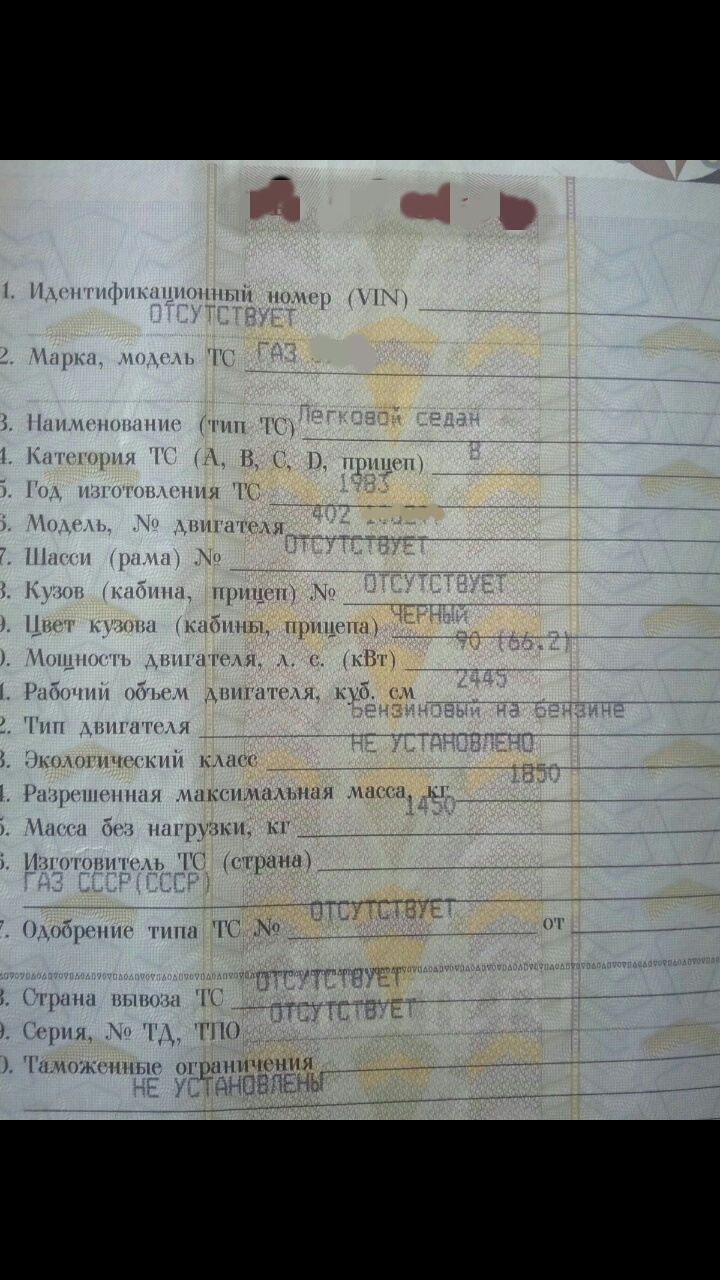 1. Идентификационный номер (VIN)
ОТСУТСТВУЕТ
2. Марка, модель ТС ГАЗ
3. Наименование (тип ТС) Легковой седан
4. Категория ТС (А, В, С, D, прицеп) В
5. Год изготовления ТС 1983
6. Модель, № двигателя 402
7. Шасси (рама) № ОТСУТСТВУЕТ
8. Кузов (кабина, прицеп) № ОТСУТСТВУЕТ
9. Цвет кузова (кабины, прицепа) ЧЕРНЫЙ
0. Мощность двигателя, л. с. (кВт) 90 (66.2)
1. Рабочий объем двигателя, куб. см 2445
2. Тип двигателя Бензиновый на бензине
3. Экологический класс НЕ УСТАНОВЛЕНО
4. Разрешенная максимальная масса, кг 1850
5. Масса без нагрузки, кг 1450
6. Изготовитель ТС (страна)
ГАЗ СССР(СССР)
7. Одобрение типа ТС № ОТСУТСТВУЕТ от
8. Страна вывоза ТС ОТСУТСТВУЕТ
9. Серия, № ТД, ТПО ОТСУТСТВУЕТ
0. Таможенные ограничения
НЕ УСТАНОВЛЕНЫ